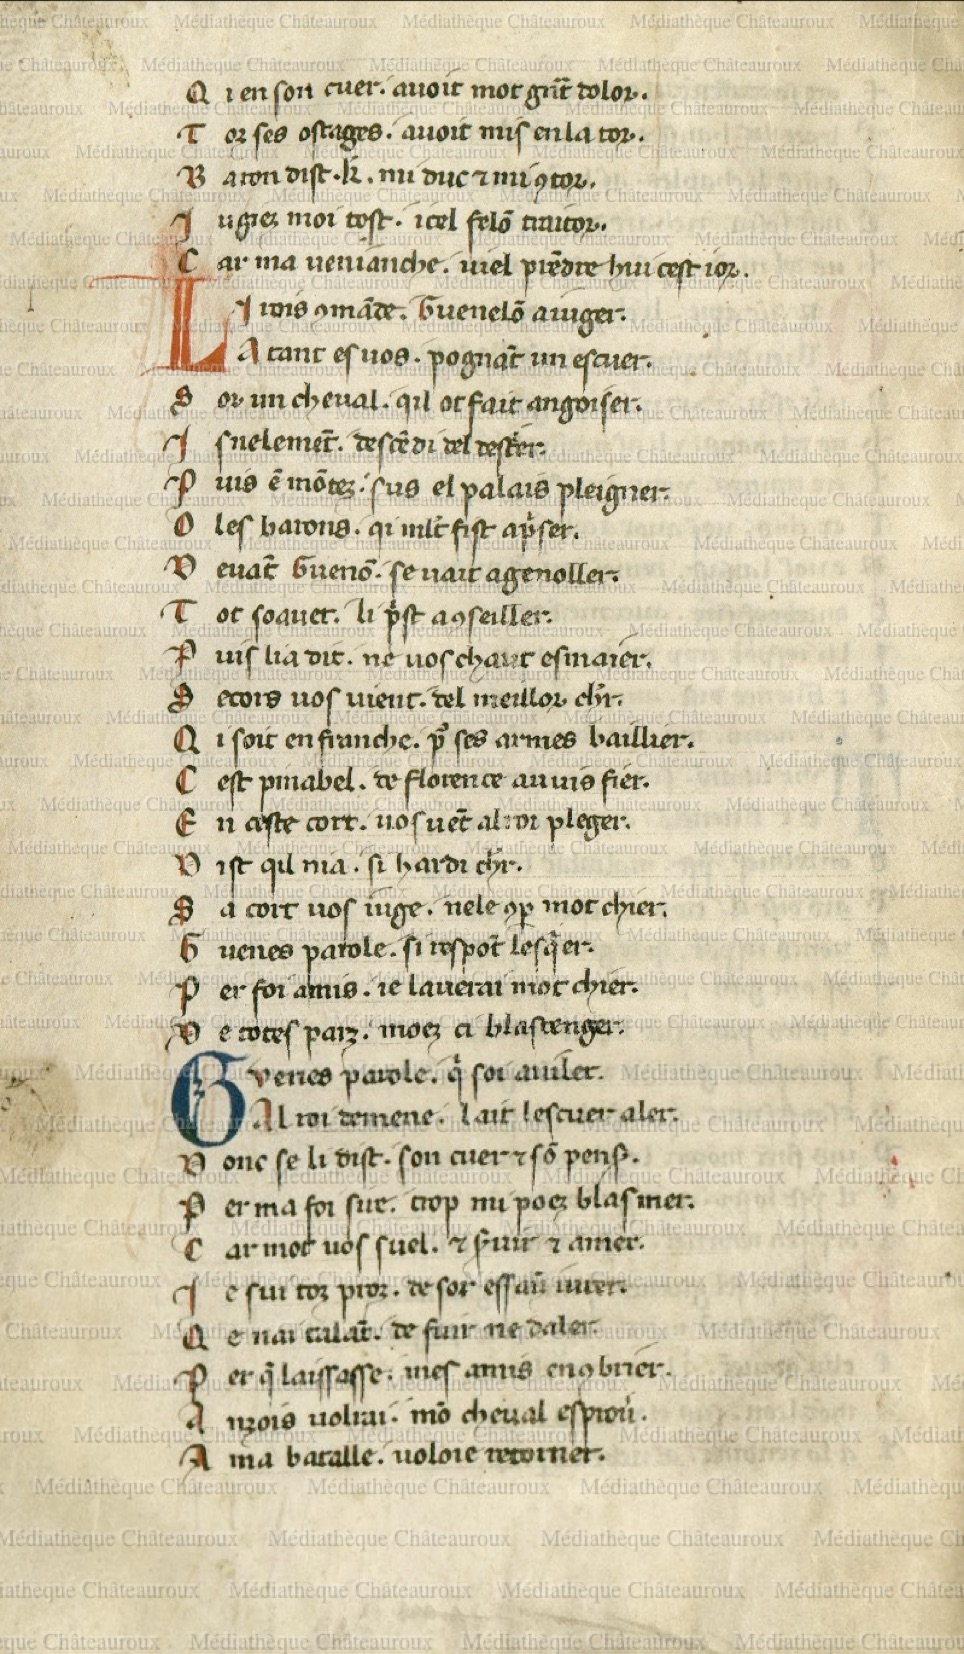 Q i en son cuer. auoit mot gñt dolor.
T oz ses ostages. auoit mis en la tor.
B aron dist .k. mi duc ⁊ mi ꝯtor.
J ugiez moi tost. icel felõ traitor.
C ar ma venianche. viel prẽdre hui cest ior.
L I rois ꝯmãde. Guenelõ a iuger.
A tant es uos. pognãt un escuer.
S or un cheual. qil ot fait angoiser.
I snelemẽt. descẽdi del dest̾er.
P uis ẽ mõtez. sus el palais pleigner.
O les barons. qi mlt̃ fist ap̾ser.
D euãt Guenõ. se uait agenoller.
T ot soauet. li p̾st a ꝯseiller.
P uis li a dit. ne uos chaut esmaier.
S ecors uos uient. del meillor ch̾r.
Q i soit en franche. pͦ ses armes baillier.
C est pinabel. de florence au uis fier.
E n ceste cort. uos uẽt al roi pleger.
D ist qil nia. si hardi ch̾r.
S a cort uos iuge. nele ꝯp̱ mot chier.
G uenes parole. si respõt lesq̃er.
P er foi amis. ie lauerai mot chier.
D e totes parz. moez ci blastenger.
G venes parole. q̾ soi auiler.
A l roi demene. lait lescuer aler.
D onc se li dist. son cuer ⁊ sõ pens̾.
P er ma foi sire. trop mi poez blasmer.
C ar mot uos suel. ⁊ s̾uir ⁊ amer.
J e sui toz proz. de sor essaũ iurer.
Q e nai talãt. de fuir ne daler.
P er q̃ laissasse. mes amis enꝯbrier.
A nzois uolrai. mõ cheual esprou̾.
A ma batalle. uoloie retorner.
Médiathèque Châteauroux